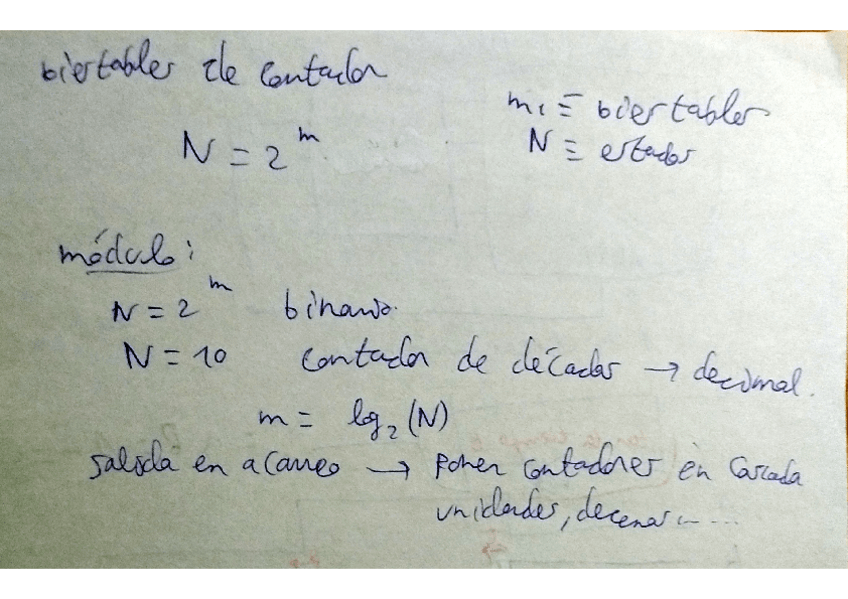 biestables de contador
N = 2^m
m ≡ biestables
N ≡ estados
módulo:
N = 2^m binario.
N = 10 contador de décadas → decimal.
m = log₂(N)
salida en acarreo → poner contadores en cascada
unidades, decenas ...